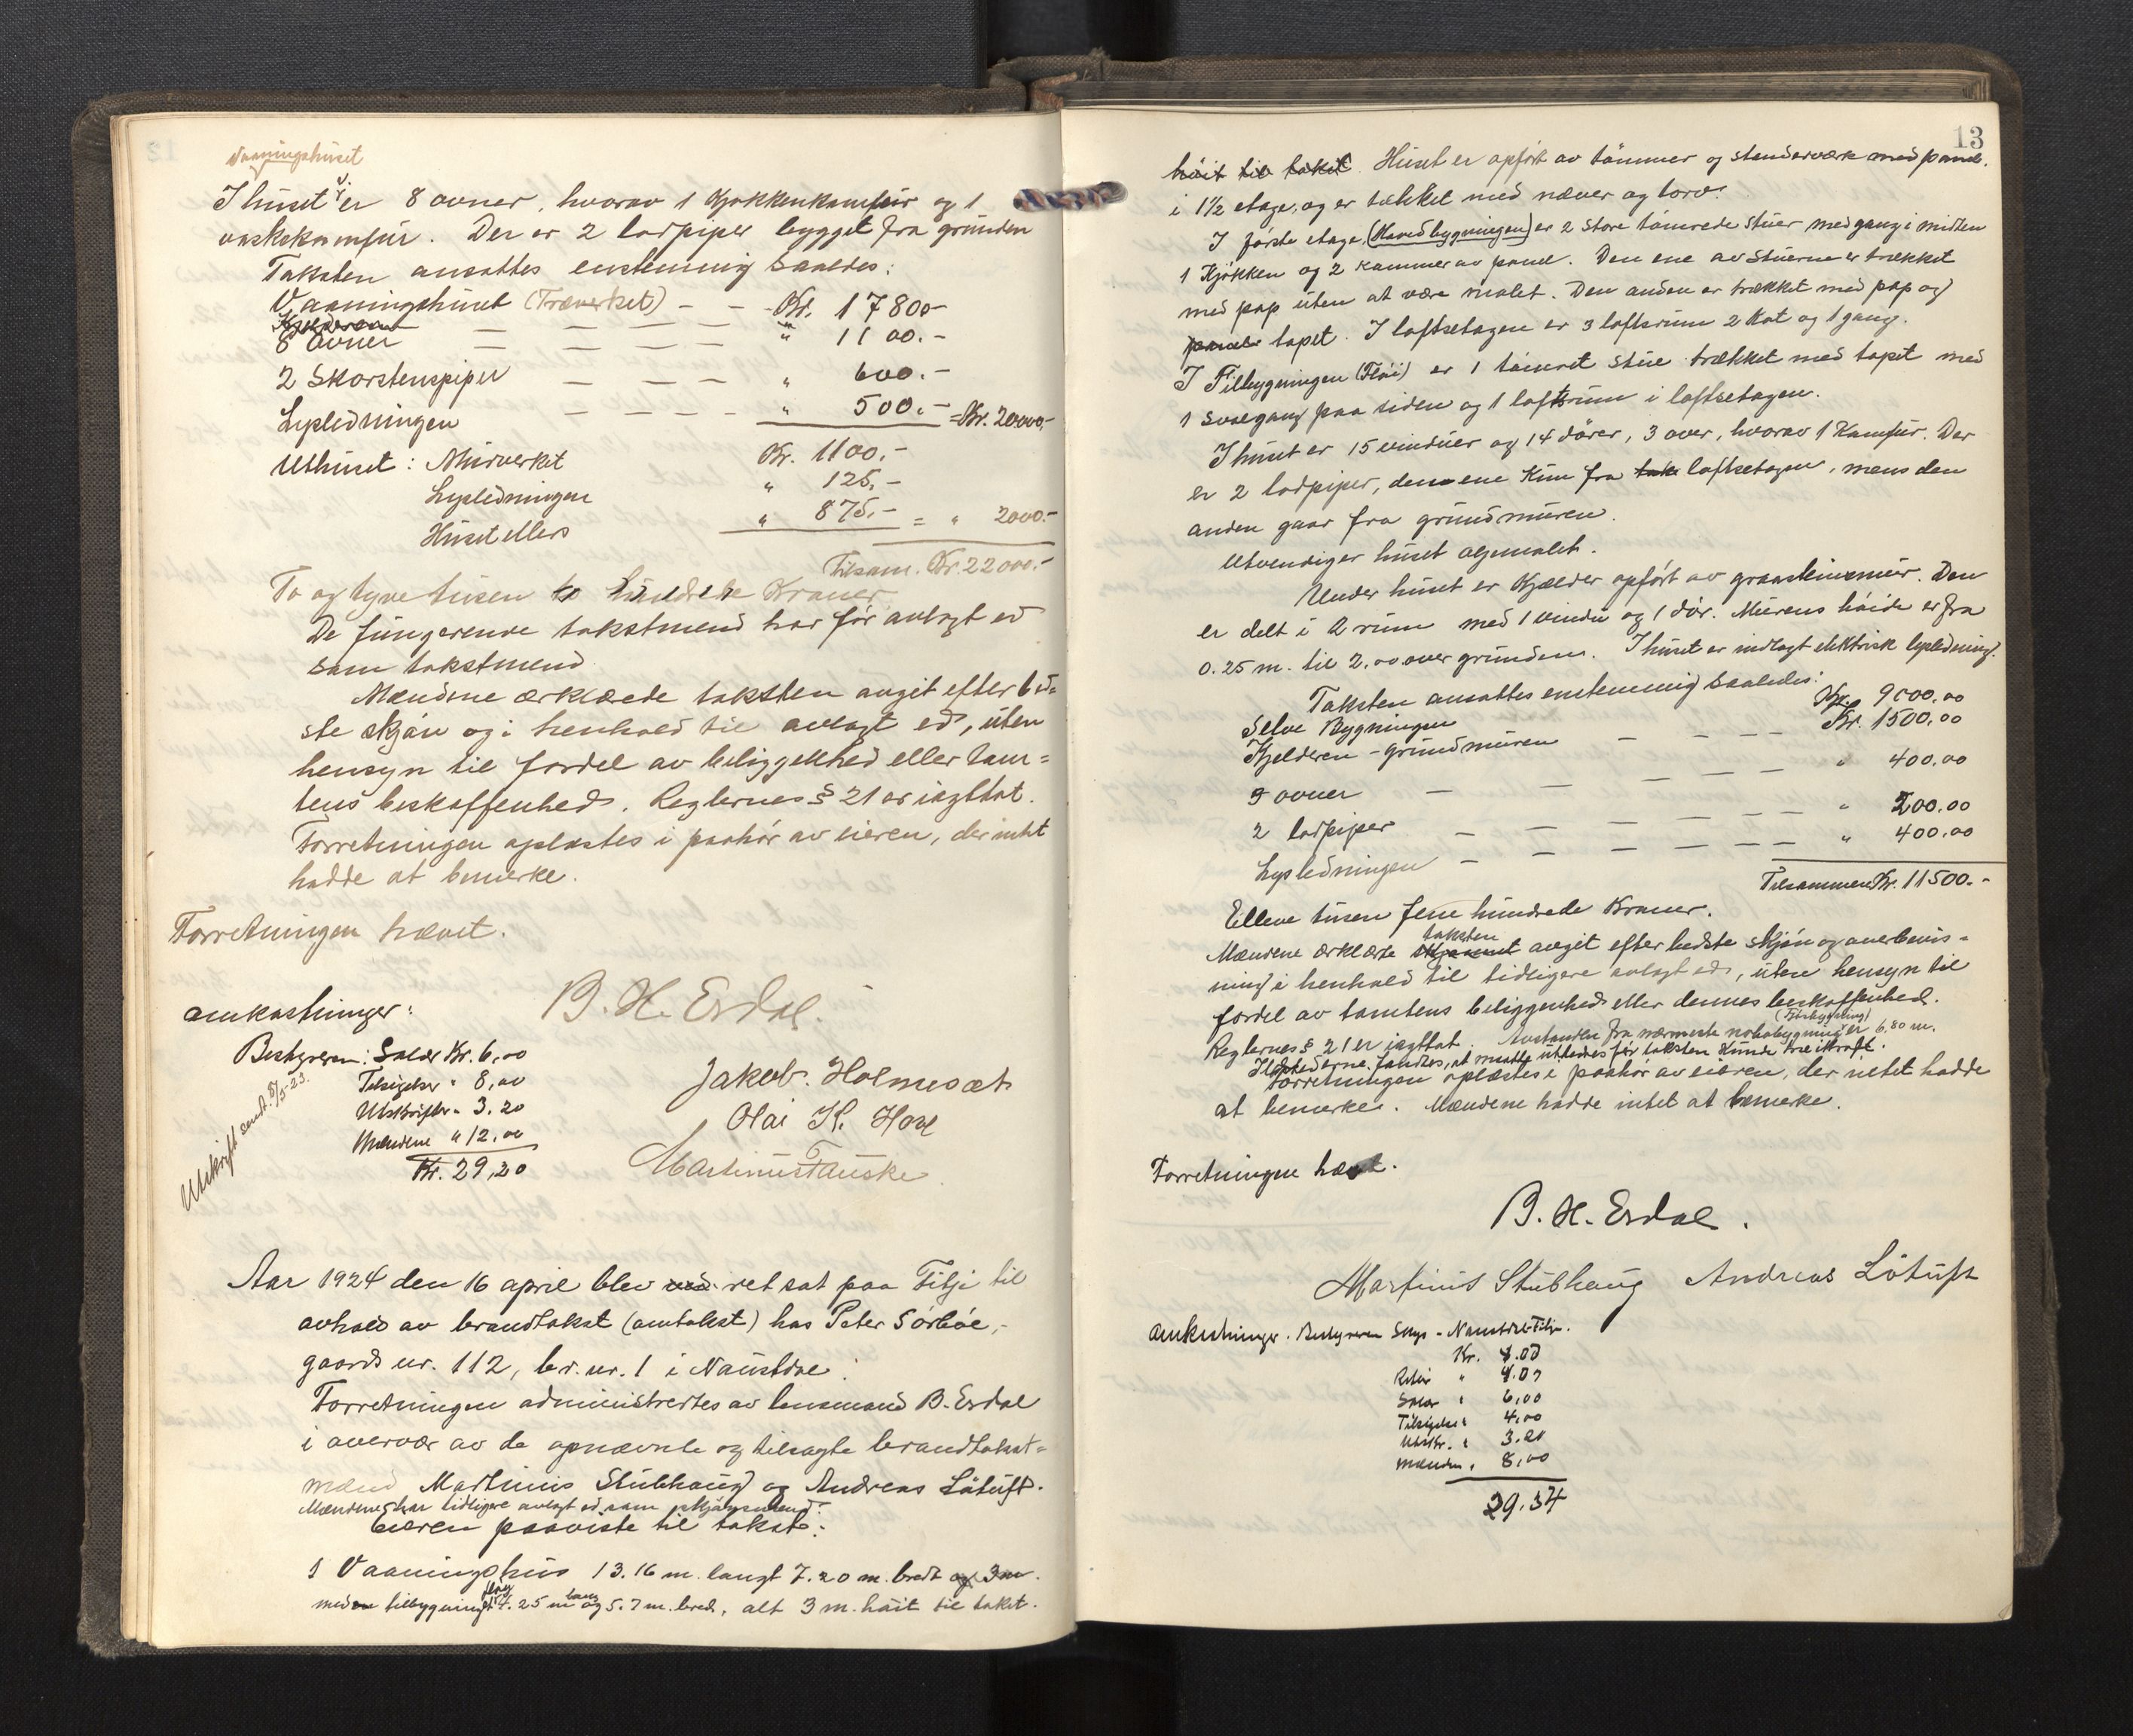 Vaaningshuset
I huset er 8 ovner, hvorav 1 Kjøkkenkomfur og 1
vaskekomfur. Der er 2 lodpiper bygget fra grunden
Taksten ansattes enstemmig saaledes:
Vaaningshuset (Træverket) - - Kr. 17800-
8 Ovner — — — — " 1100.-
2 Skorstenspiper — — — " 600.-
Lysledningen — — — — " 500.- = Kr. 20000.-
Uthuset: Murverket Kr. 1100.-
Lysledningen " 125.-
Huset ellers " 875.- = " 2000.-
Tilsam. Kr. 22000.-
To og tyve tusen to hundrede Kroner
De fungerende takstmend har før avlagt ed
som takstmend.
Mændene ærklærede taksten avgit efter bed-
ste skjøn og i henhold til avlagt ed, uten
hensyn til fordel av beliggenhed eller tom=
tens beskaffenhed. Reglernes § 21 er iagttat.
Forretningen oplæstes i paahør av eieren, der intet
hadde at bemerke.
Forretningen hævet.
B. H. Erdal.
Omkostninger:
Bestyreren: Salær Kr. 6,00
Tilsigelser " 8,00
Utskrifter " 3.20
Mændene " 12,00
Kr. 29,20
Utskrift sendt 8/5-23.
Jakob. Holmesæt
Olai K. Hove
Martinus Fauske
Aar 1924 den 16 april blev ret sat paa Tilji til
avhold av brandtakst (omtakst) hos Peter Sörböe,-
gaards nr. 112, br. nr. 1 i Naustdal.
Forretningen administrertes av lensmand B. Erdal
i overvær av de opnævnte og tilsagte brandtakst=
mænd Martinus Stubhaug og Andreas Løtuft.
Mændene har tidligere avlagt ed som skjønsmend
Eieren paaviste til takst:
1 Vaaningshus 13.16 m. langt 7.20 m. bredt og 3 m.
med tilbygning 7.25 m lang og 5.7 m. bred, alt 3 m. høit til taket.
13
høit til taket. Huset er opført av tømmer og stenderværk med panel.
i 1½ etage, og er tækket med næver og torv.
I første etage (Hovedbygningen) er 2 store tømrede stuer med gang i midten
1 Kjøkken og 2 kammer av panel. Den ene av stuerne er trækket
med pap uten at være malet. Den anden er trækket med pap og
panel tapet. I loftsetagen er 3 loftsrum 2 Kot og 1 gang.
I Tilbygningen (Fløi) er 1 tømret stue trækket med tapet med
1 svalgang paa siden og 1 loftsrum i loftsetagen.
I huset er 15 vinduer og 14 dører, 3 over, hvorav 1 Komfur. Der
er 2 lodpiper, den ene Kun fra tak loftsetagen, mens den
anden gaar fra grundmuren.
Utvendiger huset oljemalet.
Under huset er Kjælder opført av graasteinsmur. Den
er delt i 2 rum med 1 vindu og 1 dør. Murens høide er fra
0.25 m. til 2,00 over grunden. I huset er indlagt elektrisk lysledning.
Taksten ansattes enstemmig saaledes:
Selve Bygningen Kr. 9000.00
Kjelderen - grundmuren — — — Kr. 1500,00
3 ovner — — — — — " 400,00
2 lodpiper — — — — — " 200.00
Lysledningen — — — — — " 400,00
Tilsammen Kr. 11500.-
Elleve tusen fem hundrede Kroner.
Mændene ærklærte taksten avgit efter bedste skjøn og overbevis=
ning i henhold til tidligere avlagt ed, uten hensyn til
fordel av tomtens beliggenhed eller dennes beskaffenhed.
Reglernes § 21 er iagttat. Avstanden fra nærmeste nabobygning er 6,80 m.
Ildstederne fandtes, at maatte utbedres før taksten kunde træ i kraft.
Forretningen oplæstes i paahør av eieren, der intet hadde
at bemerke. Mændene hadde intet at bemerke.
Forretningen hævet.
B. H. Erdal.
Martinus Stubhaug Andreas Løtuft
Omkostninger. Bestyreren Skys - Naustdal-Tilji.
Kr. 4.07
Retur " 4.07
Salær " 6,00
Tilsigelse " 4,00
Utskr. " 3.20
Mænden " 8,00
29.34